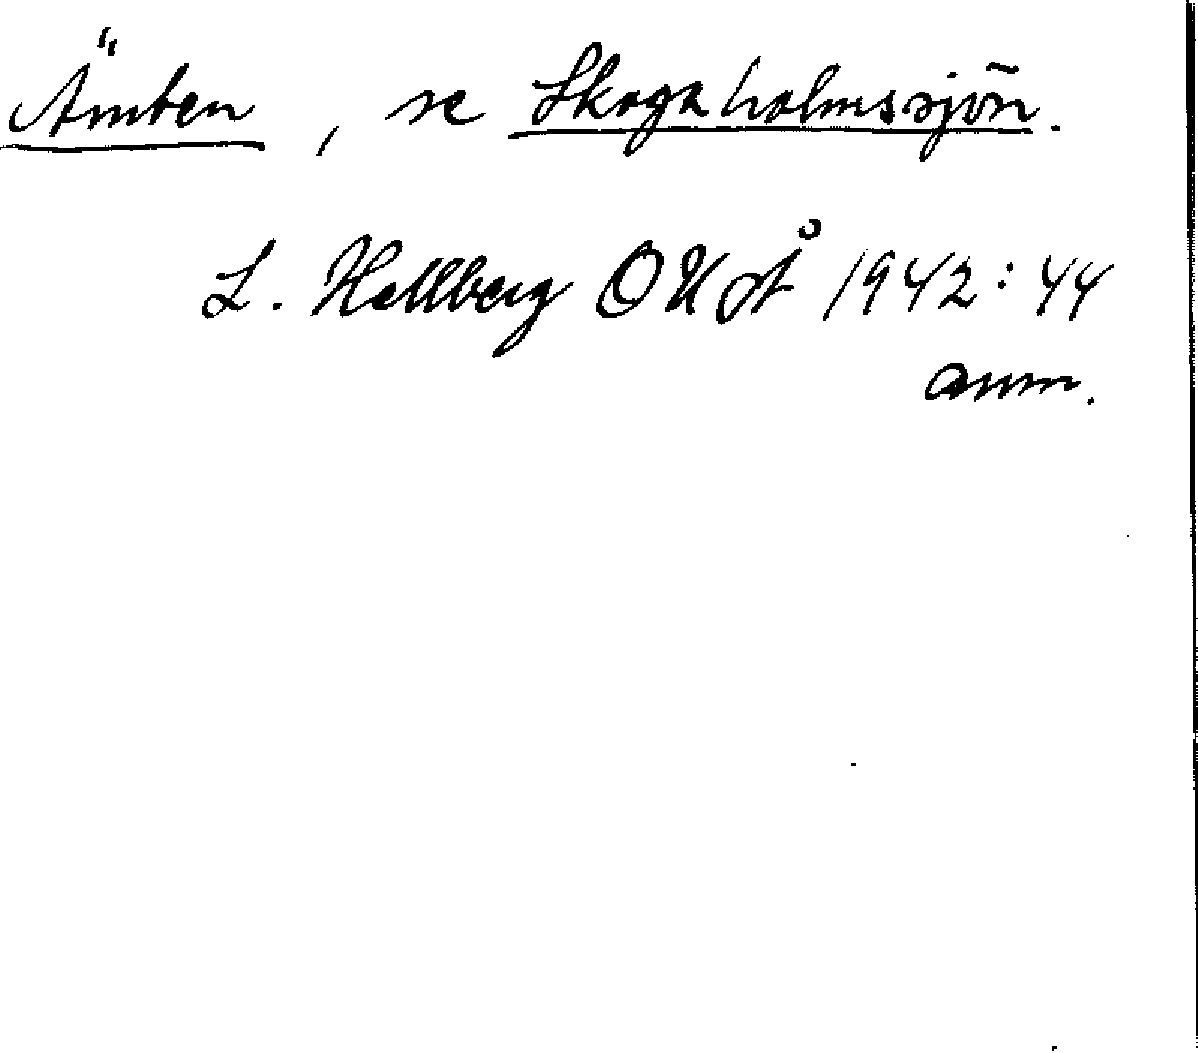 Ämten, se Skogaholmssjön.
L. Hellberg OUÅ 1942:44
anm.